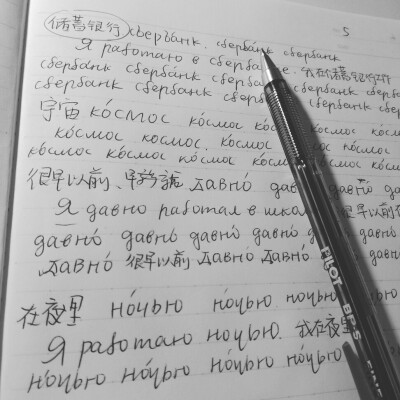 5
储蓄银行 сбербанк. сбербáнк сбербанк
Я работаю в сбербанке. 我在储蓄银行工作
сбербáнк сбербáнк сбербанк
сбербáнк сбербанк сбербанк сбербанк сбер
宇宙 кóсмос кóсмос космос кос
кóсмос космос, космос космос пóсмос
космос кóсмос пóсмос космос космос
很早以前、давнó давнó давнó
Я давно работал в школе 很早以前
давнó давнó давнó давнó давнó
давнó 很早以前 давнó давнó
在夜里 нóчью нóчью ночью
Я работаю ночью. 我在夜里
нóчью нóчью нóчью нóчью
PILOT BPS FINE